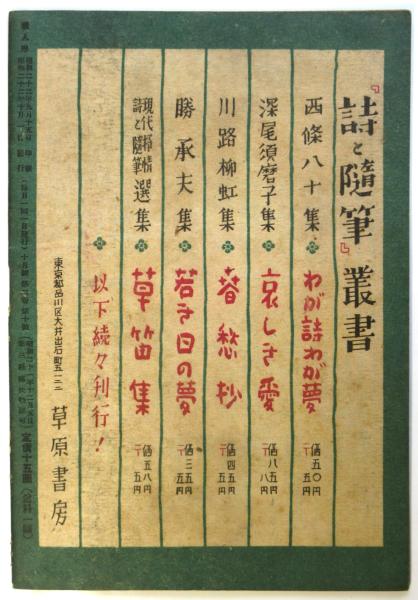 『詩と随筆』叢書
西條八十集 わが詩わが夢 価五〇円 〒五円
深尾須磨子集 哀しき愛 価八五円 〒八円
川路柳虹集 春愁抄 価四五円 〒五円
勝承夫集 若き日の夢 価三五円 〒五円
現代抒情詩と随筆選集 草笛集 価五八円 〒五円
以下続々刊行!
東京都品川区大井出石町五一三二 草原書房
定価十五圓